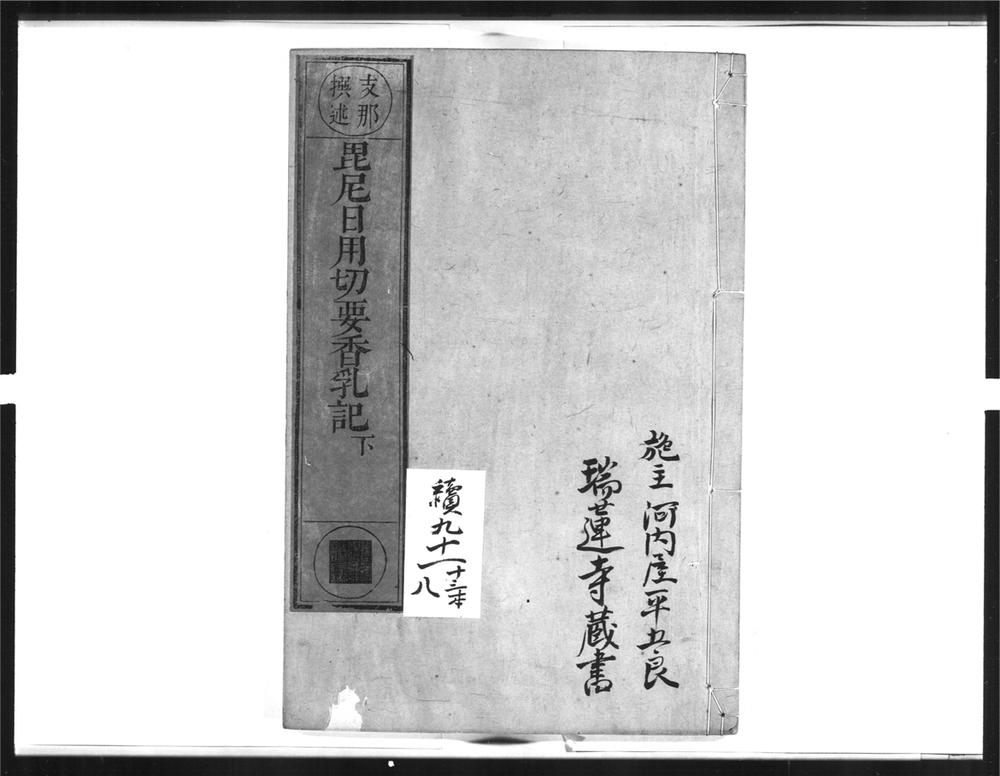 施主河内屋平五良
瑞蓮寺蔵書
支那
撰述
毘尼日用切要香乳記下
續九十一
十三本
八